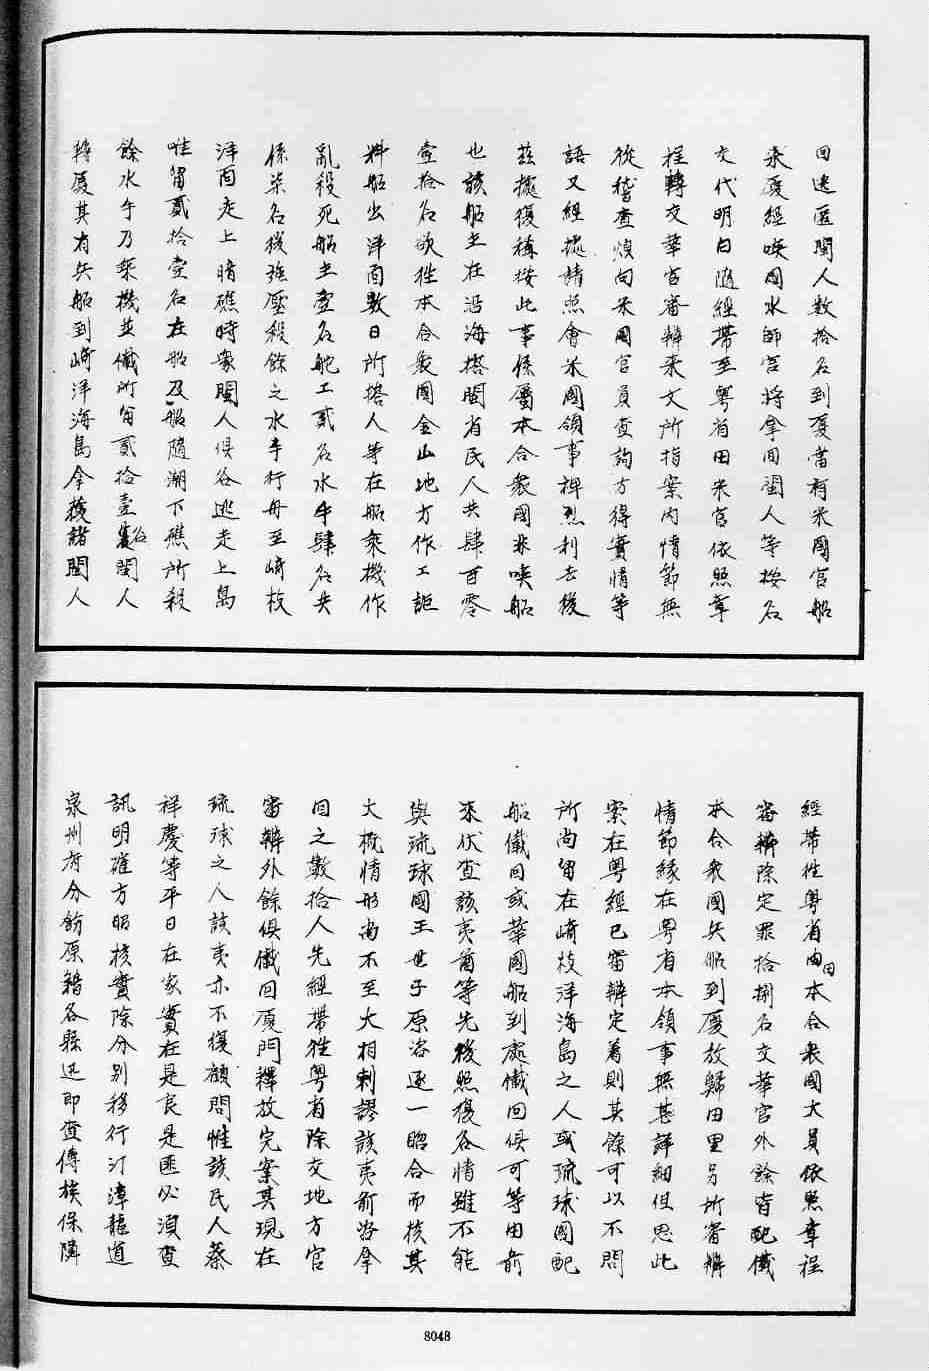 回送匪閩人數拾名到厦當有米國官船
來厦經喚國水師官將拿回閩人等按名
交代明白隨經帶至粤省由米官依照章
程轉交華官審辦來文所指案內情節無
從稽查煩向米國官員查詢方得實情等
語又經據請照會米國領事裨烈利去後
茲據復稱按此事係屬本合衆國非喚船
也該船主在沿海搭閩省民人共肆百零
壹拾名欲往本合衆國金山地方作工詎
料船出洋面數日所搭人等在船乘機作
亂殺死船主壹名舵工貳名水手肆名共
係柒名後強壓殺餘之水手行舟至崎枝
洋面走上暗礁時衆閩人俱各逃走上島
唯留貳拾壹名在船及船隨潮下礁所殺
餘水手乃乘機並儎所留貳拾壹名閩人
轉厦其有兵船到崎洋海島拿獲諸閩人
經帶往粤省由本合衆國大員依照章程
審辦除定罪拾捌名交華官外餘皆配儎
本合衆國兵船到厦放歸田里另所審辦
情節緣在粤省本領事無甚詳細但思此
案在粤經已審辦定着則其餘可以不問
所尚留在崎枝洋海島之人或琉球國配
船儎回或華國船到處儎回俱可等由前
來伏查該夷酋等先後照復各情雖不能
與琉球國王世子原咨逐一昭合而核其
大概情形尚不至大相剌謬該夷前咨拿
回之數拾人先經帶往粤省除交地方官
審辦外餘俱儎回厦門釋放完案其現在
琉球之人該夷亦不復顧問惟該民人蔡
祥慶等平日在家實在是良是匪必須查
訊明確方昭核實除分別移行汀漳龍道
泉州府分飭原籍各縣迅即查傳族保隣
8048